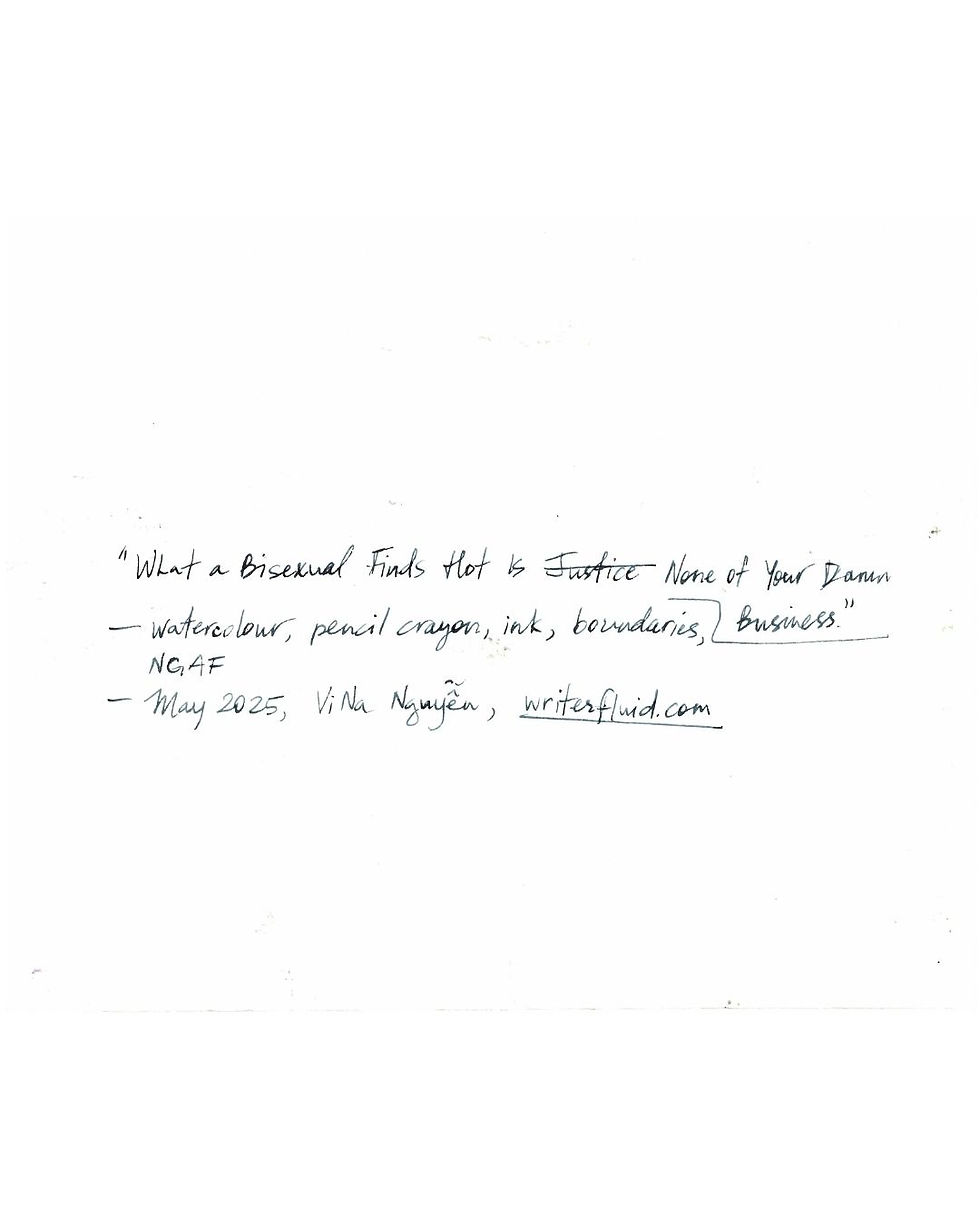 "What a Bisexual Finds Hot Is Justice None of Your Damn
Business."
— watercolour, pencil crayon, ink, boundaries,
NGAF
— May 2025, ViNa Nguyễn, writerfluid.com